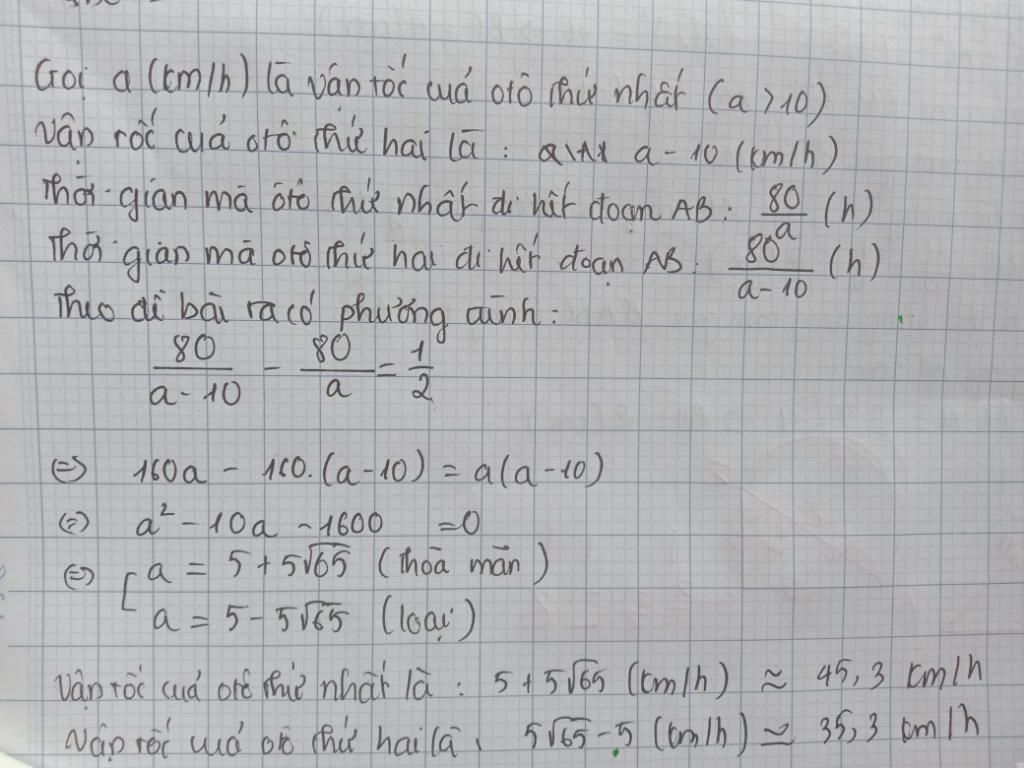 Gọi a (km/h) là vận tốc cuả ôtô thứ nhất (a > 10)
Vận rốc cuả ôtô thứ hai là : a - 10 (km/h)
Thời gian mà ôtô thứ nhất đi hết đoạn AB : 80/a (h)
Thời gian mà ôtô thứ hai đi hết đoạn AB : 80/(a-10) (h)
Theo đề bài ra có phương trình :
80/(a-10) - 80/a = 1/2
⇔ 160a - 160.(a-10) = a(a-10)
⇔ a² - 10a - 1600 = 0
⇔ [ a = 5 + 5√65 (thoã mãn)
a = 5 - 5√65 (loại)
Vận tốc cuả ôtô thứ nhất là : 5 + 5√65 (km/h) ≈ 45,3 km/h
Vận tốc cuả ôtô thứ hai là : 5√65 - 5 (km/h) ≃ 35,3 km/h